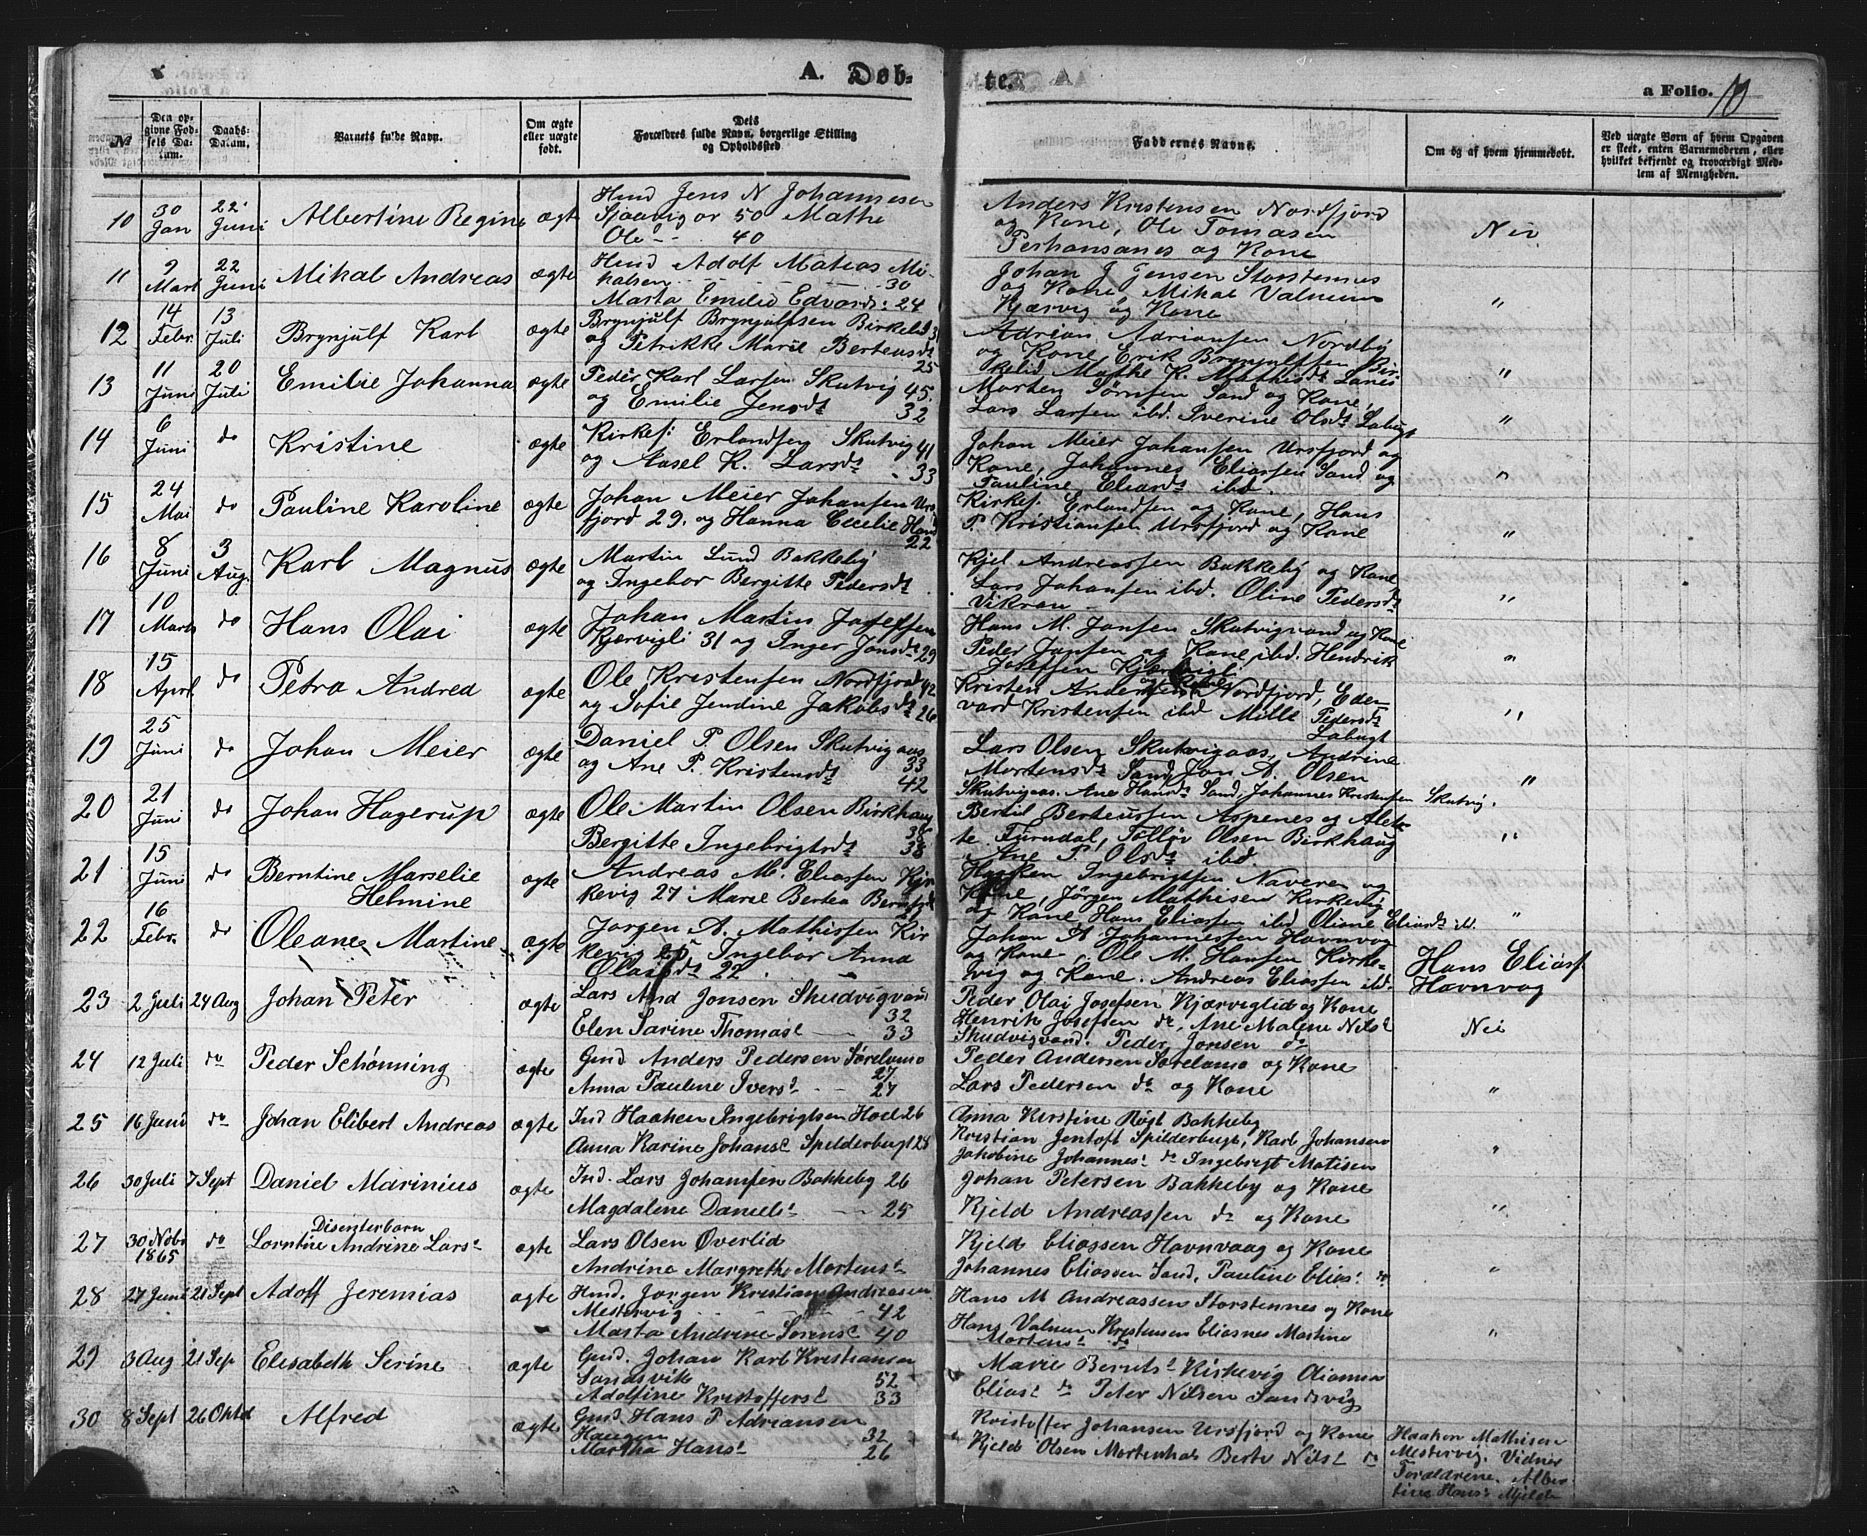 A. Døb-
te.
a Folio. 10
№
Den op-
givne Fød-
sels Da-
tum.
Daabs-
Datum.
Barnets fulde Navn.
Om ægte
eller uægte
født.
Dets
Forældres fulde Navn, borgerlige Stilling
og Opholdssted.
Faddernes Navne.
Om og af hvem hjemmedøbt.
Ved uægte Børn af hvem Opgaven
er skeet, enten Barnemoderen, eller
hvilket bekjendt og troværdigt Med-
lem af Menigheden.
10 30 Jan 22 Juni Albertine Regine ægte
Huul Jens N Johannesen
Sjaavig or 50 Mathe
Ole 40
Anders Kristensen Nordfjord
og Kone, Ole Tomasen
Perhansanes og Kone
Nei
11 9 Mart 22 Juni Mikal Andreas ægte
Adolf Matias Mi-
kalsen 30
Marta Emilie Edvards: 24
Johan J Jensen Storstennes
og Kone Mikal Valnum
Kjærvig og Kone
"
12 14 Febr. 13 Juli Brynjulf Karl ægte
Brynjulf Brynjulfsen Birkelid 31
og Petrikke Marie Berteusd: 25
Adrian Adriansen Nordby
og Kone Erik Brynjulfsen Bir-
kelid Mathe K. Mathisd: Lanes
"
13 11 Juni 20 Juli Emilie Johanna ægte
Peder Karl Larsen Skutvig 45.
og Emilie Jensd: 32
Morten Sørnsen Sand og Kone,
Lars Larsen ibd. Iverine Olsd: Labugt
"
14 6 Juni do Kristine ægte
Kirkes: Erlandsen Skutvig 41
og Aasel K. Larsd: 33
Johan Meier Johansen Ursfjord og
Kone, Johannes Eliassen Sand og
Pauline Eliasd: ibd.
"
15 24 Mai do Pauline Karoline ægte
Johan Meier Johansen Urs
fjord 29. og Hanna Cecelie Hansd:
22
Kirkes: Erlandsen og Kone, Hans
P. Kristiansen Ursfjord og Kone
"
16 8 Juni 3 Aug. Karl Magnus ægte
Martin Lund Bakkeby
og Ingebor Bergitte Pedersd:
Kjel Andreassen Bakkeby og Kone
Lars Johansen ibd. Oline Pedersd:
Vikran
"
17 10 Marts do Hans Olai ægte
Johan Martin Josefsen
Kjærvigli 31 og Inger Jonsd: 29
Hans M. Jonsen Skutvigvand og Kone
Peder Jonsen og Kone ibd. Hendrik
Josefsen Kjærvigli
og Kone
"
18 15 April do Petra Andrea ægte
Ole Kristensen Nordfjord 42
og Sofie Jendine Jakobsd: 26
Kristen Andersen Nordfjord, Ed-
vard Kristensen ibd Mille Pedersd:
Labugt
"
19 25 Juni do Johan Meier ægte
Daniel P. Olsen Skutvigaas
33
og Ane P. Kristensd: 42
Lars Olsen Skutvigaas, Andrine
Mortensd: Sand, Jon A. Olsen
Skutvigaas. Ane Hansd: Sand, Johannes Kristensen Skutvig.
"
20 21 Juni do Johan Hagerup ægte
Ole Martin Olsen Birkhaug
38
Bergitte Ingebrigtsd: 38
Bertil Berteussen Aspenes og Alet-
te Furudal, Tolløv Olsen Birkhaug
Ane P. Olsd: ibd
"
21 15 Juni do Berntine Marselie
Helmine ægte
Andreas M. Eliassen Kir-
kevig 27 Marie Bertea
Haaken Ingebrigtsen Naveren og
Kone, Jørgen Mathisen Kirkevig
og Kone Hans Eliassen ibd Oliane Eliasd: ibd.
"
22 16 Febr. do Oleane Martine ægte
Jørgen A. Mathissen Kir
kevig 25 Ingebor Anna
Olaisd: 22.
Johan A Johannessen Havnvog
og Kone, Ole M. Hansen Kirke-
vig og Kone. Andreas Eliassen ibd.
Hans Eliasf
Havnvog
23 2 Juli 24 Aug Johan Peter ægte
Lars And Jonsen Skudvigvand
32
Elen Sarine Thomasd: 33
Peder Olai Josefsen Kjærviglid og Kone
Henrik Josefsen do, Ane Malene Nils:
Skudvigvand. Peder Jonsen do
Nei
24 12 Juli do Peder Schønning ægte
Gmd Anders Pedersen Sørelvmo
27
Anna Pauline Ivers: 27
Peder Andersen Sørelvmo og Kone
Lars Pedersen do og Kone
"
25 16 Juni do Johan Elibert Andreas ægte
Ind Haaken Ingebrigtsen Hoel 26
Anna Karine Johans: Spilderbugt 28
Anna Kirstine Røgt Bakkeby
Kristian Jentoft Spilderbugt, Karl Johansen
Jakobine Johannes: do Ingebregt Matisen
"
26 30 Juli 7 Sept Daniel Marinius ægte
Ind. Lars Johansen Bakkeby 26
Magdalene Daniels: 25
Johan Petersen Bakkeby og Kone
Kjeld Andreassen do og Kone
"
27 30 Nvbr 1865 do Disenterbarn
Lorntine Andrine Lars: ægte
Lars Olsen Øverlid
Andrine Margrethe Mortens:
Kjeld Eliassen Havnvaag og Kone
Johannes Eliassen Sand, Pauline Elias: do
"
28 27 Juni 21 Sept Adolf Jeremias ægte
Hmd. Jørgen Kristian Andreasen
Mestervig 42
Marta Andrine Sørens: 40
Hans M Andreassen Storstennes og Kone
Hans Valnum Kristensen Eliasnes Martine
Mortens: do
"
29 3 Aug 21 Sep Elisabeth Serine ægte
Gmd. Johan Karl Kristiansen
Sandsvik 52
Adolfine Kristoffers: 33
Marie Bernts: Kirkevig Olianna
Elias: do Peter Nilsen Sandsvig
30 8 Sept 26 Oktob Alfred ægte
Gmd. Hans P Adriansen
Haugen 32
Martha Hans: 26
Kristoffer Johansen Ursfjord og Kone
Kjeld Olsen Mortenhals Berte Nils: do
Haakon Mathisen
Mestervig. Vidner
Forældrene. Alber
tine Hans: Mjelde